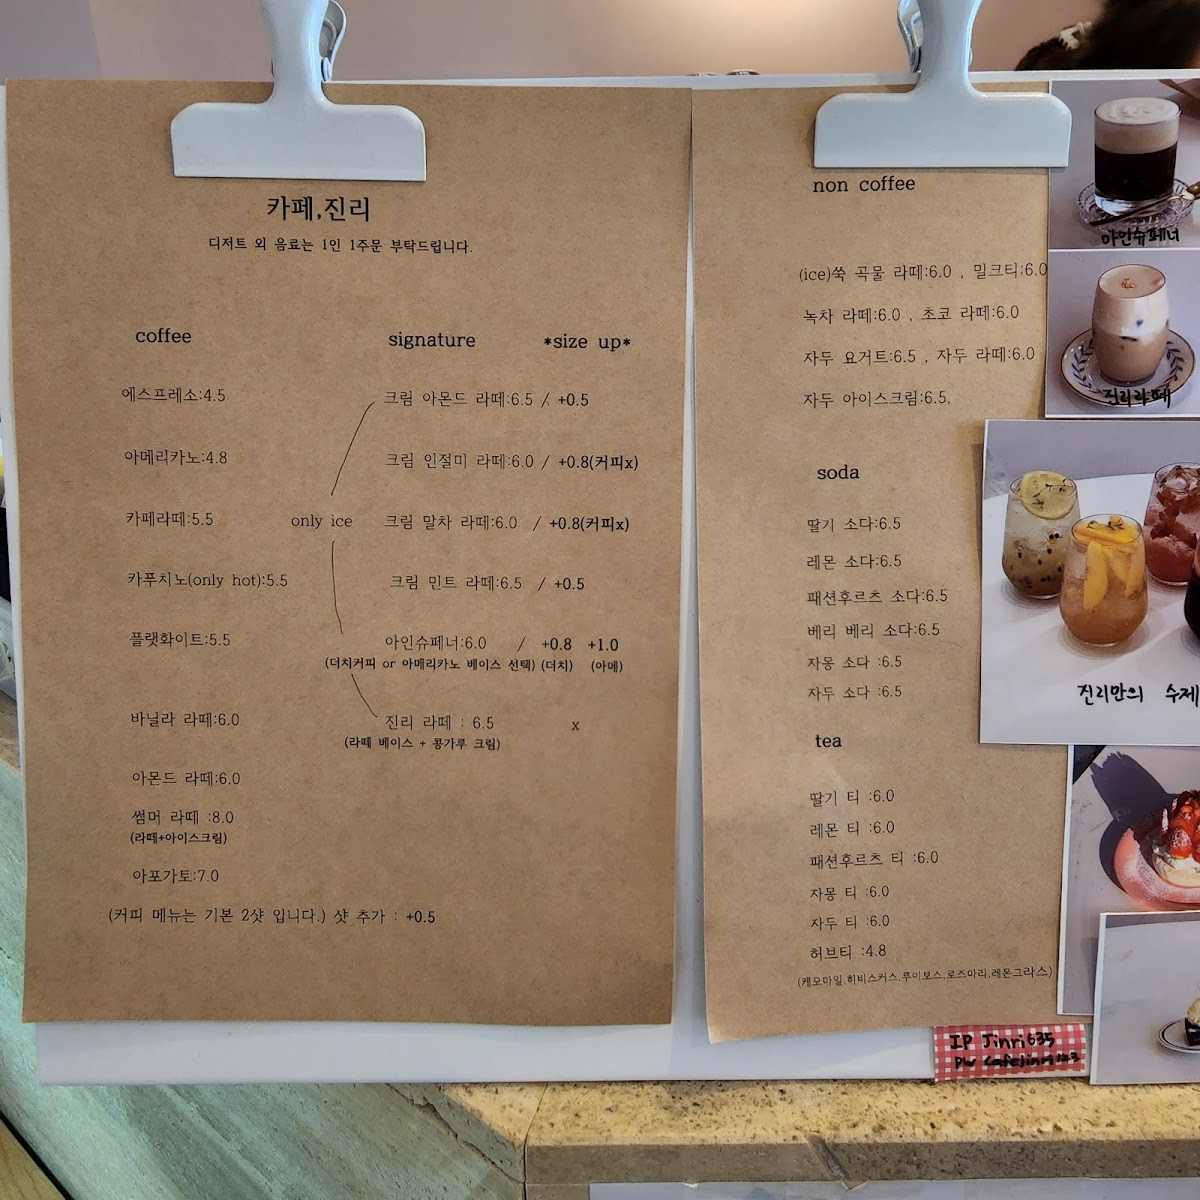 카페,진리
디저트 외 음료는 1인 1주문 부탁드립니다.
coffee
에스프레소:4.5
아메리카노:4.8
카페라떼:5.5
카푸치노(only hot):5.5
플랫화이트:5.5
바닐라 라떼:6.0
아몬드 라떼:6.0
썸머 라떼 :8.0
(라떼+아이스크림)
아포가토:7.0
(커피 메뉴는 기본 2샷 입니다.) 샷 추가 : +0.5
only ice
signature *size up*
크림 아몬드 라떼:6.5 / +0.5
크림 인절미 라떼:6.0 / +0.8(커피x)
크림 말차 라떼:6.0 / +0.8(커피x)
크림 민트 라떼:6.5 / +0.5
아인슈페너:6.0 / +0.8 +1.0
(더치커피 or 아메리카노 베이스 선택) (더치) (아메)
진리 라떼 : 6.5 x
(라떼 베이스 + 콩가루 크림)
non coffee
(ice)쑥 곡물 라떼:6.0 , 밀크티:6.0
녹차 라떼:6.0 , 초코 라떼:6.0
자두 요거트:6.5 , 자두 라떼:6.0
자두 아이스크림:6.5,
soda
딸기 소다:6.5
레몬 소다:6.5
패션후르츠 소다:6.5
베리 베리 소다:6.5
자몽 소다 :6.5
자두 소다 :6.5
tea
딸기 티 :6.0
레몬 티 :6.0
패션후르츠 티 :6.0
자몽 티 :6.0
자두 티 :6.0
허브티 :4.8
(케모마일,히비스커스,루이보스,로즈마리,레몬그라스)
아인슈페너
진리라떼
진리만의 수제
IP Jinri635
PW Cafejinri123